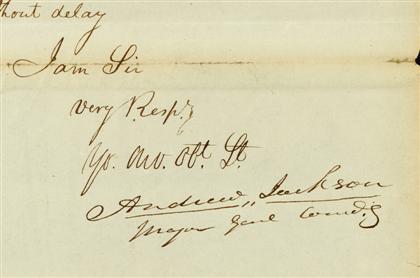 thout delay
I am Sir
very Resp.y
Yo. Mo. Obt. St.
Andrew Jackson
Major Genl Comdg